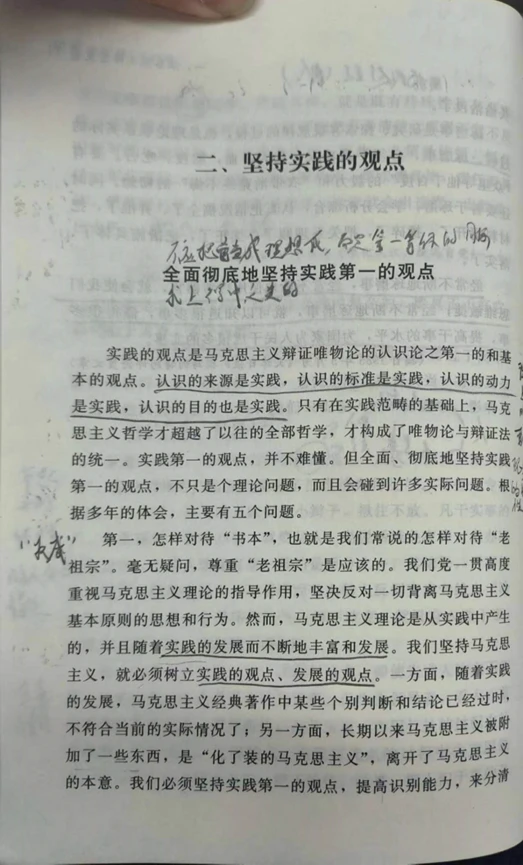 二、坚持实践的观点
全面彻底地坚持实践第一的观点
实践的观点是马克思主义辩证唯物论的认识论之第一的和基
本的观点。认识的来源是实践，认识的标准是实践，认识的动力
是实践，认识的目的也是实践。只有在实践范畴的基础上，马克
思主义哲学才超越了以往的全部哲学，才构成了唯物论与辩证法
的统一。实践第一的观点，并不难懂。但全面、彻底地坚持实践
第一的观点，不只是个理论问题，而且会碰到许多实际问题。根
据多年的体会，主要有五个问题。
第一，怎样对待“书本”，也就是我们常说的怎样对待“老
祖宗”。毫无疑问，尊重“老祖宗”是应该的。我们党一贯高度
重视马克思主义理论的指导作用，坚决反对一切背离马克思主义
基本原则的思想和行为。然而，马克思主义理论是从实践中产生
的，并且随着实践的发展而不断地丰富和发展。我们坚持马克思
主义，就必须树立实践的观点、发展的观点。一方面，随着实践
的发展，马克思主义经典著作中某些个别判断和结论已经过时，
不符合当前的实际情况了；另一方面，长期以来马克思主义被附
加了一些东西，是“化了装的马克思主义”，离开了马克思主义
的本意。我们必须坚持实践第一的观点，提高识别能力，来分清